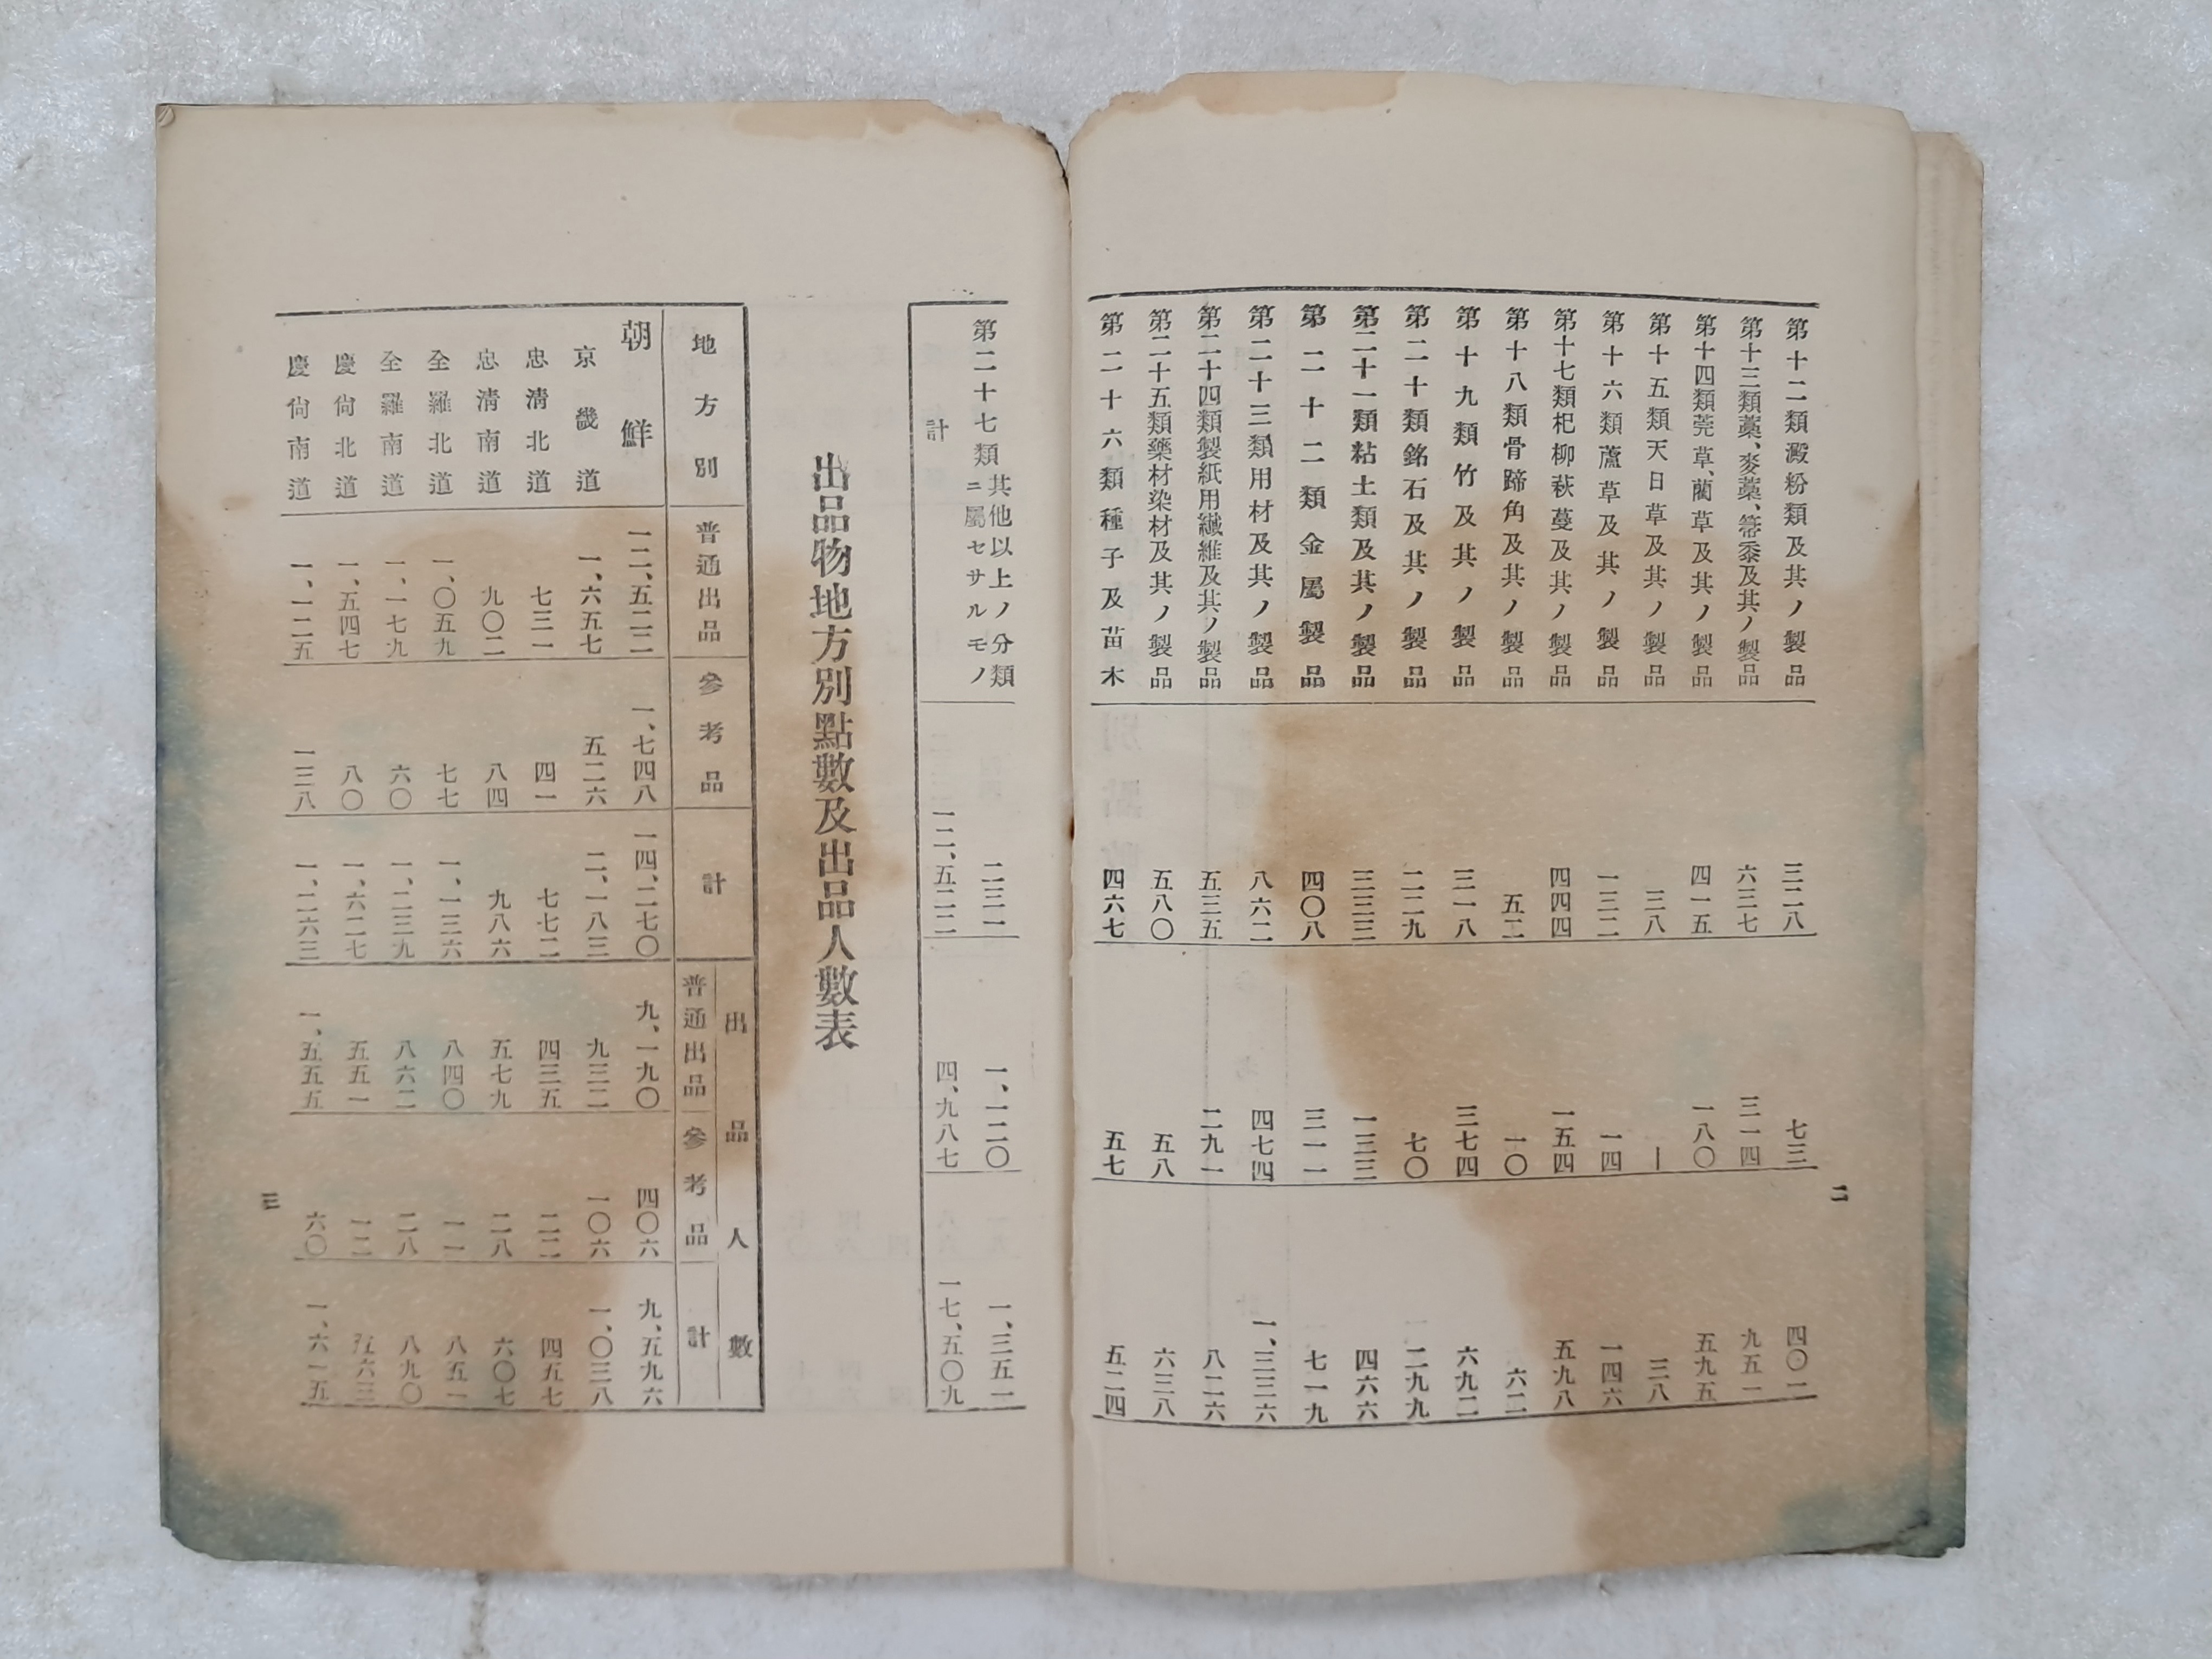 第十二類澱粉類及其ノ製品 三二八 七三 四〇一
第十三類藁、麥藁、箒黍及其ノ製品 六三七 三一四 九五一
第十四類莞草、藺草及其ノ製品 四一五 一八〇 五九五
第十五類天日草及其ノ製品 三八 ー 三八
第十六類蘆草及其ノ製品 一三二 一四 一四六
第十七類杞柳萩蔓及其ノ製品 四四四 一五四 五九八
第十八類骨蹄角及其ノ製品 五二 一〇 六二
第十九類竹及其ノ製品 三一八 三七四 六九二
第二十類銘石及其ノ製品 二二九 七〇 二九九
第二十一類粘土類及其ノ製品 三三三 一三三 四六六
第二十二類金屬製品 四〇八 三一一 七一九
第二十三類用材及其ノ製品 八六二 四七四 一、三三六
第二十四類製紙用纖維及其ノ製品 五三五 二九一 八二六
第二十五類藥材染材及其ノ製品 五八〇 五八 六三八
第二十六類種子及苗木 四六七 五七 五二四
二
第二十七類其他以上ノ分類ニ屬セサルモノ 二三一 一、一二〇 一、三五一
計 一二、五二二 四、九八七 一七、五〇九
出品物地方別點數及出品人數表
地方別 普通出品 參考品 計 出品人數
普通出品 參考品 計
朝鮮 一二、五二二 一、七四八 一四、二七〇 九、一九〇 四〇六 九、五九六
京畿道 一、六五七 五二六 二、一八三 九三二 一〇六 一、〇三八
忠清北道 七三一 四一 七七二 四三五 二二 四五七
忠清南道 九〇二 八四 九八六 五七九 二八 六〇七
全羅北道 一、〇五九 七七 一、一三六 八四〇 一一 八五一
全羅南道 一、一七九 六〇 一、二三九 八六二 二八 八九〇
慶尙北道 一、五四七 八〇 一、六二七 五五一 一二 五六三
慶尙南道 一、一二五 一三八 一、二六三 一、五五五 六〇 一、六一五
三